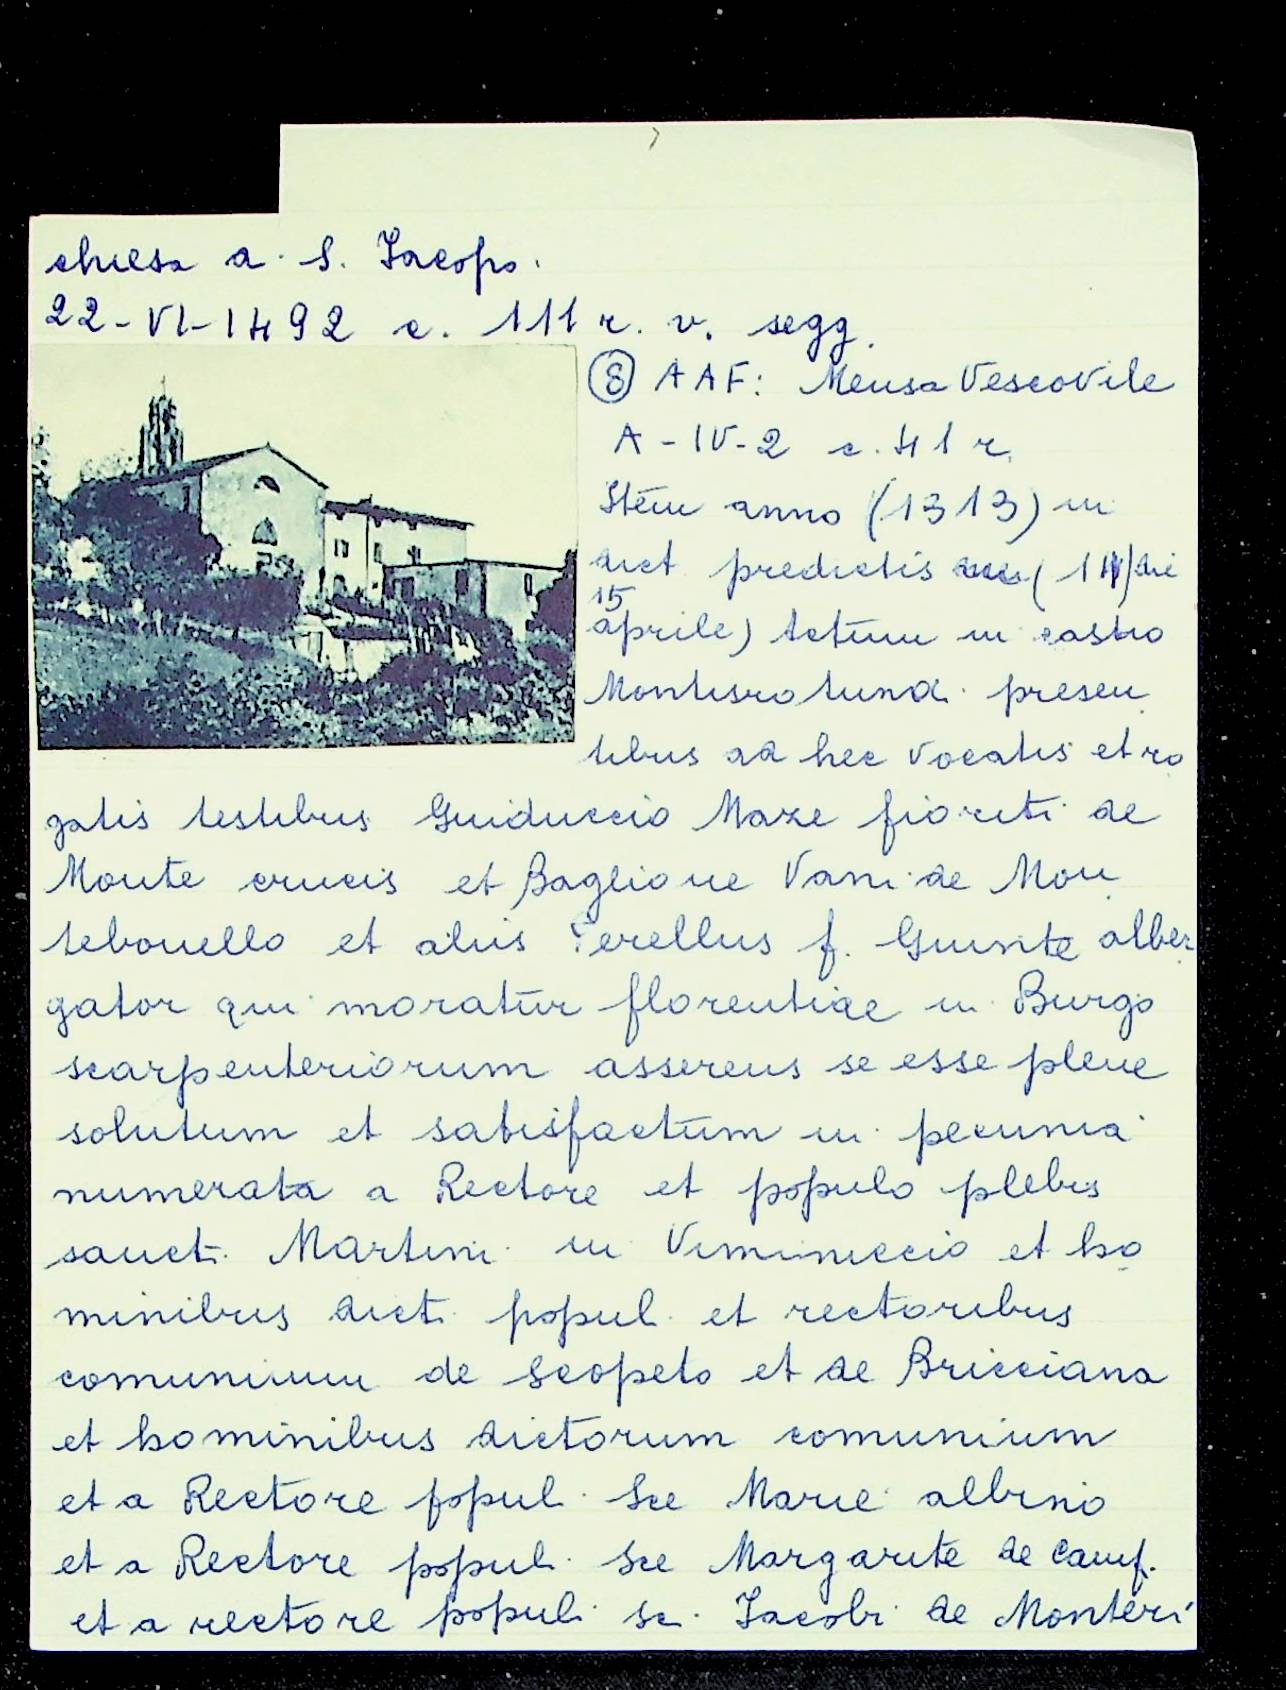 chiesa a S. Jacopo.
22-VI-1492 c. 111 r. v. segg.
⑧ AAF: Mensa Vescovile
A-IV-2 c. 41 r.
Item anno (1313) in
dict predictis (14 die
15
aprile) actum in castro
Montisrotundi presen
tibus ad hec vocatis et ro
gatis testibus Guiduccio Maze fioriti de
Monte crucis et Baglione Vani de Mon
tebonello et aliis Perellus f. Giunte alber
gator qui moratur florentiae in Burgo
scarpenteriorum asserens se esse plene
solutum et satisfactum in pecunia
numerata a Rectore et populo plebis
sancti Martini in Viminiccio et ho
minibus dicti populi et rectoribus
comunium de Scopeto et de Bricciana
et hominibus dictorum comunium
et a Rectore populi Sce Marie albino
et a Rectore populi Sce Margarite de Camp.
et a rectore populi sc. Jacobi de Monteri